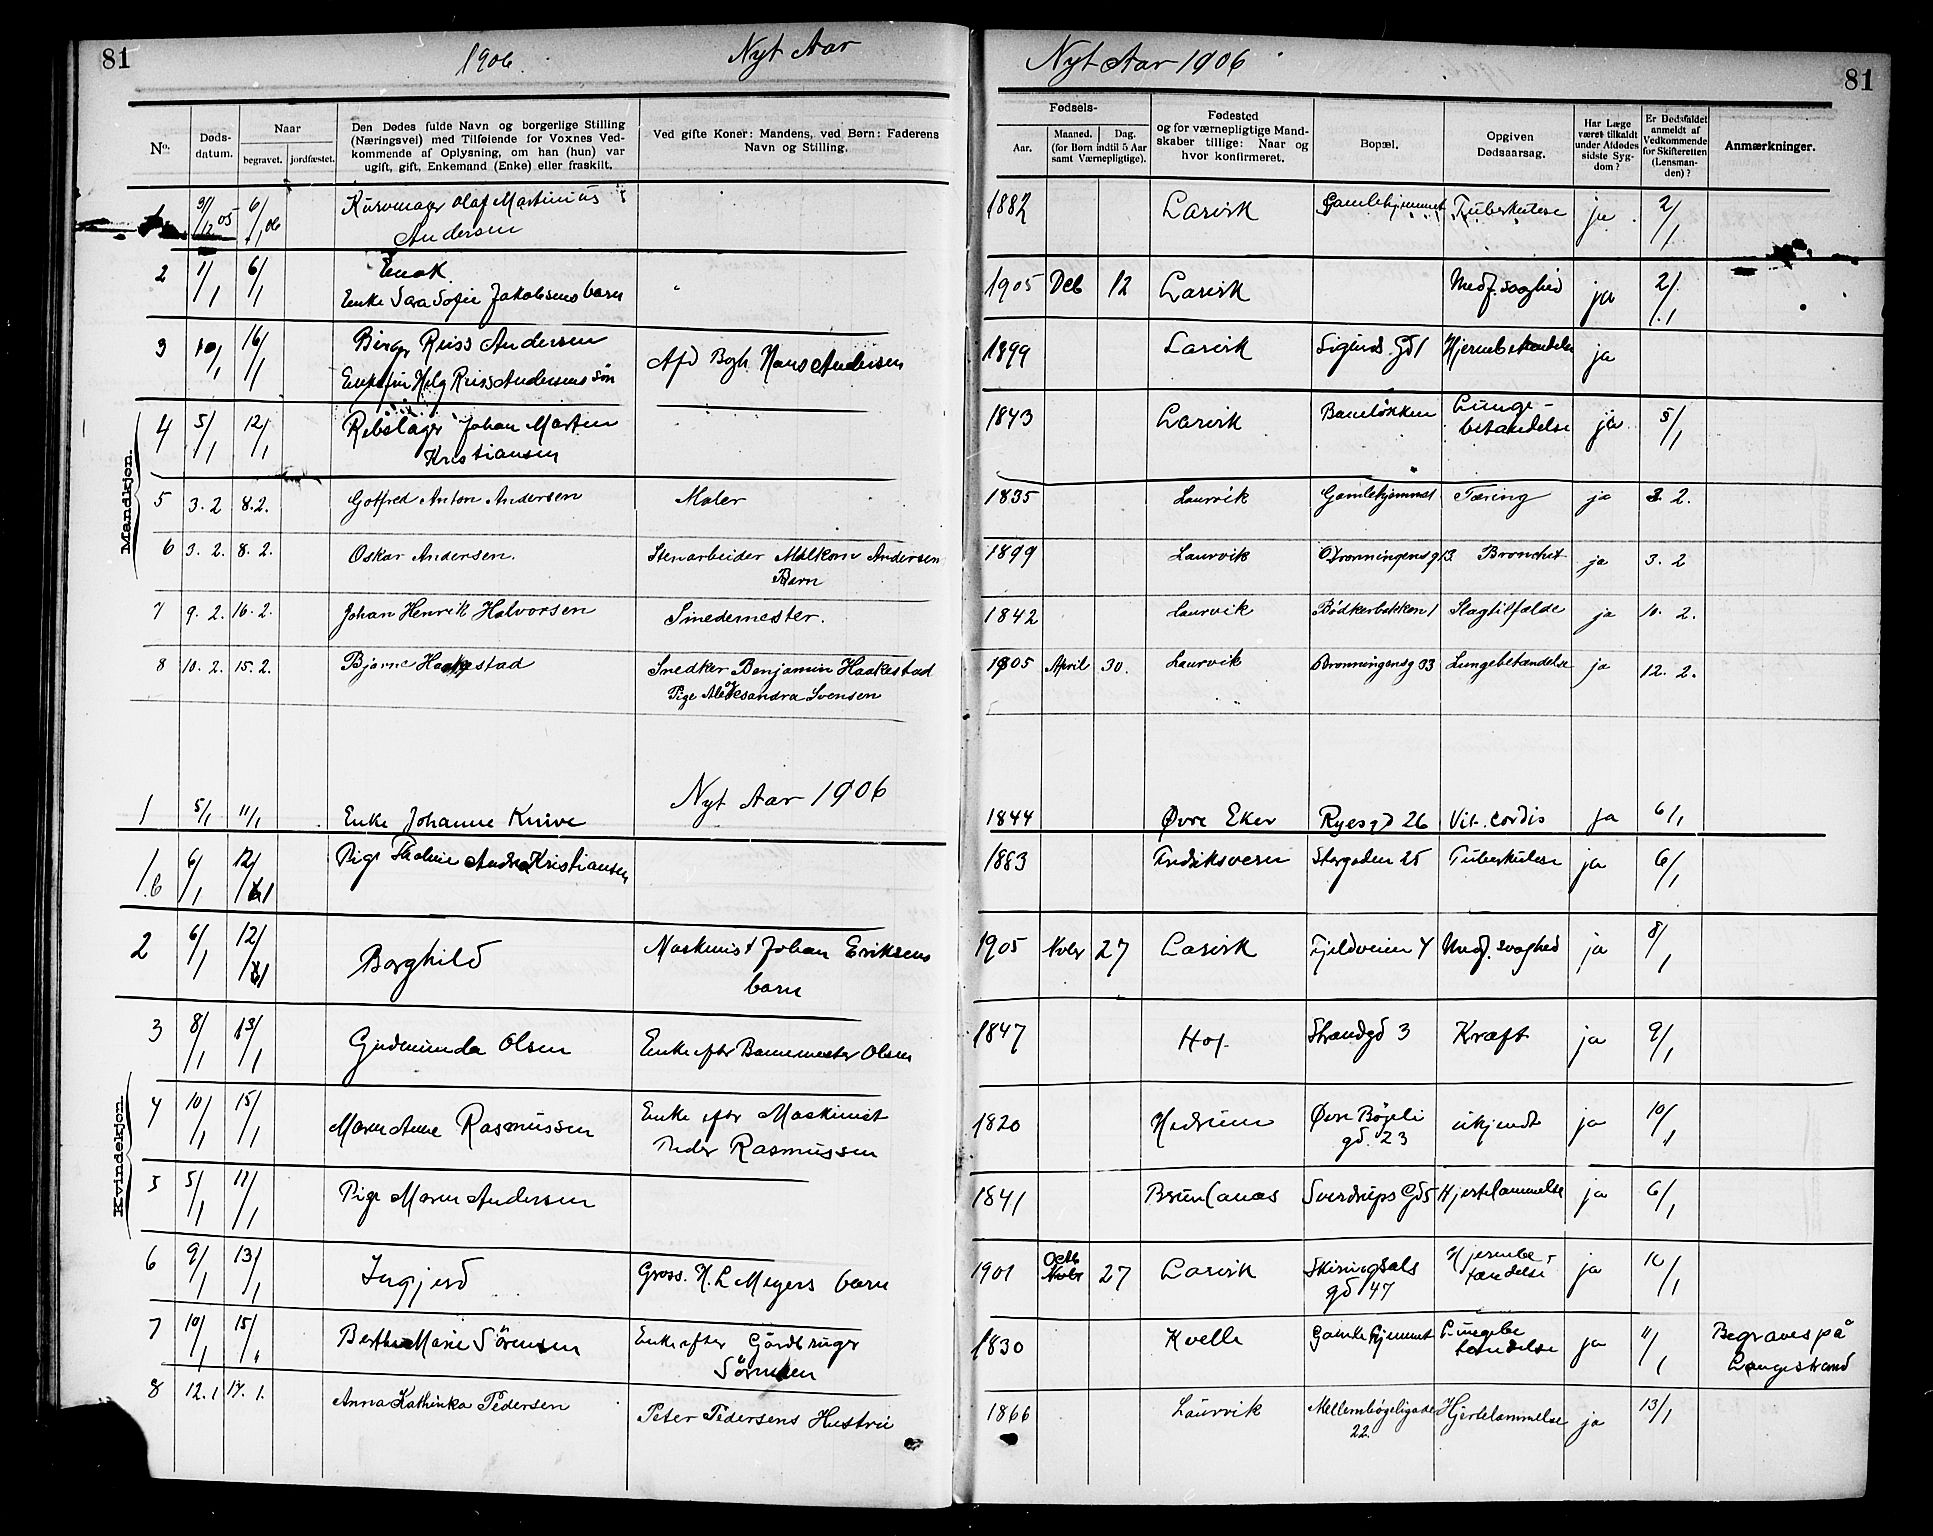 81
1906.
Nyt Aar
Nyt Aar 1906
81
No.
Døds-
datum.
Naar
begravet. jordfæstet.
Den Dødes fulde Navn og borgerlige Stilling
(Næringsvei) med Tilføiende for Voxnes Ved-
kommende af Oplysning, om han (hun) var
ugift, gift, Enkemand (Enke) eller fraskilt.
Ved gifte Koner: Mandens, ved Børn: Faderens
Navn og Stilling.
Fødsels-
Aar.
Maaned. Dag.
(for Børn indtil 5 Aar
samt Værnepligtige).
Fødested
og for værnepligtige Mand-
skaber tillige: Naar og
hvor konfirmeret.
Bopæl.
Opgiven
Dødsaarsag.
Har Læge
været tilkaldt
under Afdødes
sidste Syg-
dom?
Er Dødsfaldet
anmeldt af
Vedkommende
for Skifteretten
(Lensman-
den)?
Anmærkninger.
Mandkjøn.
1 31/12 05 6/1 06 Kurvmager Olaf Martinius 1882 Larvik Gamlehjemmet Tuberkulose ja 2/1
Andersen
2 1/1 6/1 Enok 1905 Deb 12 Larvik Medf. svaghed ja 2/1
Enke Sara Sofie Jakobsens barn
3 10/1 16/1 Birger Reiss Andersen Afd Bogh. Hans Andersen 1899 Larvik Sigurds Gd 1 Hjernebetændelse ja
Helg Reiss Andersens søn
4 5/1 12/1 Rebslager Johan Martin 1843 Larvik Baneløkken Lunge-
Kristiansen betændelse ja 5/1
5 3. 2 8. 2. Gotfred Anton Andersen Maler 1835 Laurvik Gamlehjemmet Tæring ja 3. 2.
6 3. 2. 8. 2. Oskar Andersen. Stenarbeider Milkom Andersen 1899 Laurvik Dronningensg 13 Bronchit ja 3. 2
Barn
7 9. 2. 16. 2. Johan Henrik Halvorsen Smedemester. 1842 Laurvik Bødkerbakken 1 Slagtilfælde ja 10. 2.
8 10. 2. 15. 2. Bjarne Haakestad Snedker Benjamin Haakestad 1905 April 30. Laurvik Dronningensg 33 Lungebetændelse ja 12. 2.
og
Pige Aleksandra Svensen
Nyt Aar 1906
Kvindekjøn.
1 5/1 11/1 Enke Johanne Knive 1844 Øvre Eker Ryesgd 26 Vit. cordis ja 6/1
1 b 6/1 12/1 Pige Tholine Andrea Kristiansen 1883 Fredriksvern Storgaden 25 Tuberkulose ja 6/1
2 6/1 12/1 Borghild Maskinist Johan Eriksens 1905 Nvbr 27 Larvik Fjeldveien 4 Medf. svaghed ja 8/1
barn
3 8/1 13/1 Gudmunda Olsen Enke efter Banemester Olsen 1847 Hof. Strandgd 3 Kræft ja 9/1
4 10/1 15/1 Maren Anne Rasmussen Enke efter Maskinist 1820 Hedrum Øvre Bøgeli ukjendt ja 10/1
Peder Rasmussen gd. 23
5 5/1 11/1 Pige Maren Andersen 1841 Brunlanæs Sverdrups Gd 5 Hjertelammelse ja 6/1
6 9/1 13/1 Ingjerd Gross. H. L Meyers barn 1901 Octb Nvbr 27 Larvik Skiringsals Hjernebe-
gd 47 tændelse ja 10/1
7 10/1 15/1 Berthe Marie Sörensen Enke efter Gårdbruger 1830 Kvelle Gamlehjemmet Lungebe ja 11/1 Begraves på
Sörensen tændelse Langestrand
8 12. 1 17. 1. Anna Kathinka Pedersen Peter Pedersens Hustru 1866 Laurvik Mellembøgeligade Hjertelammelse ja 13/1
22.